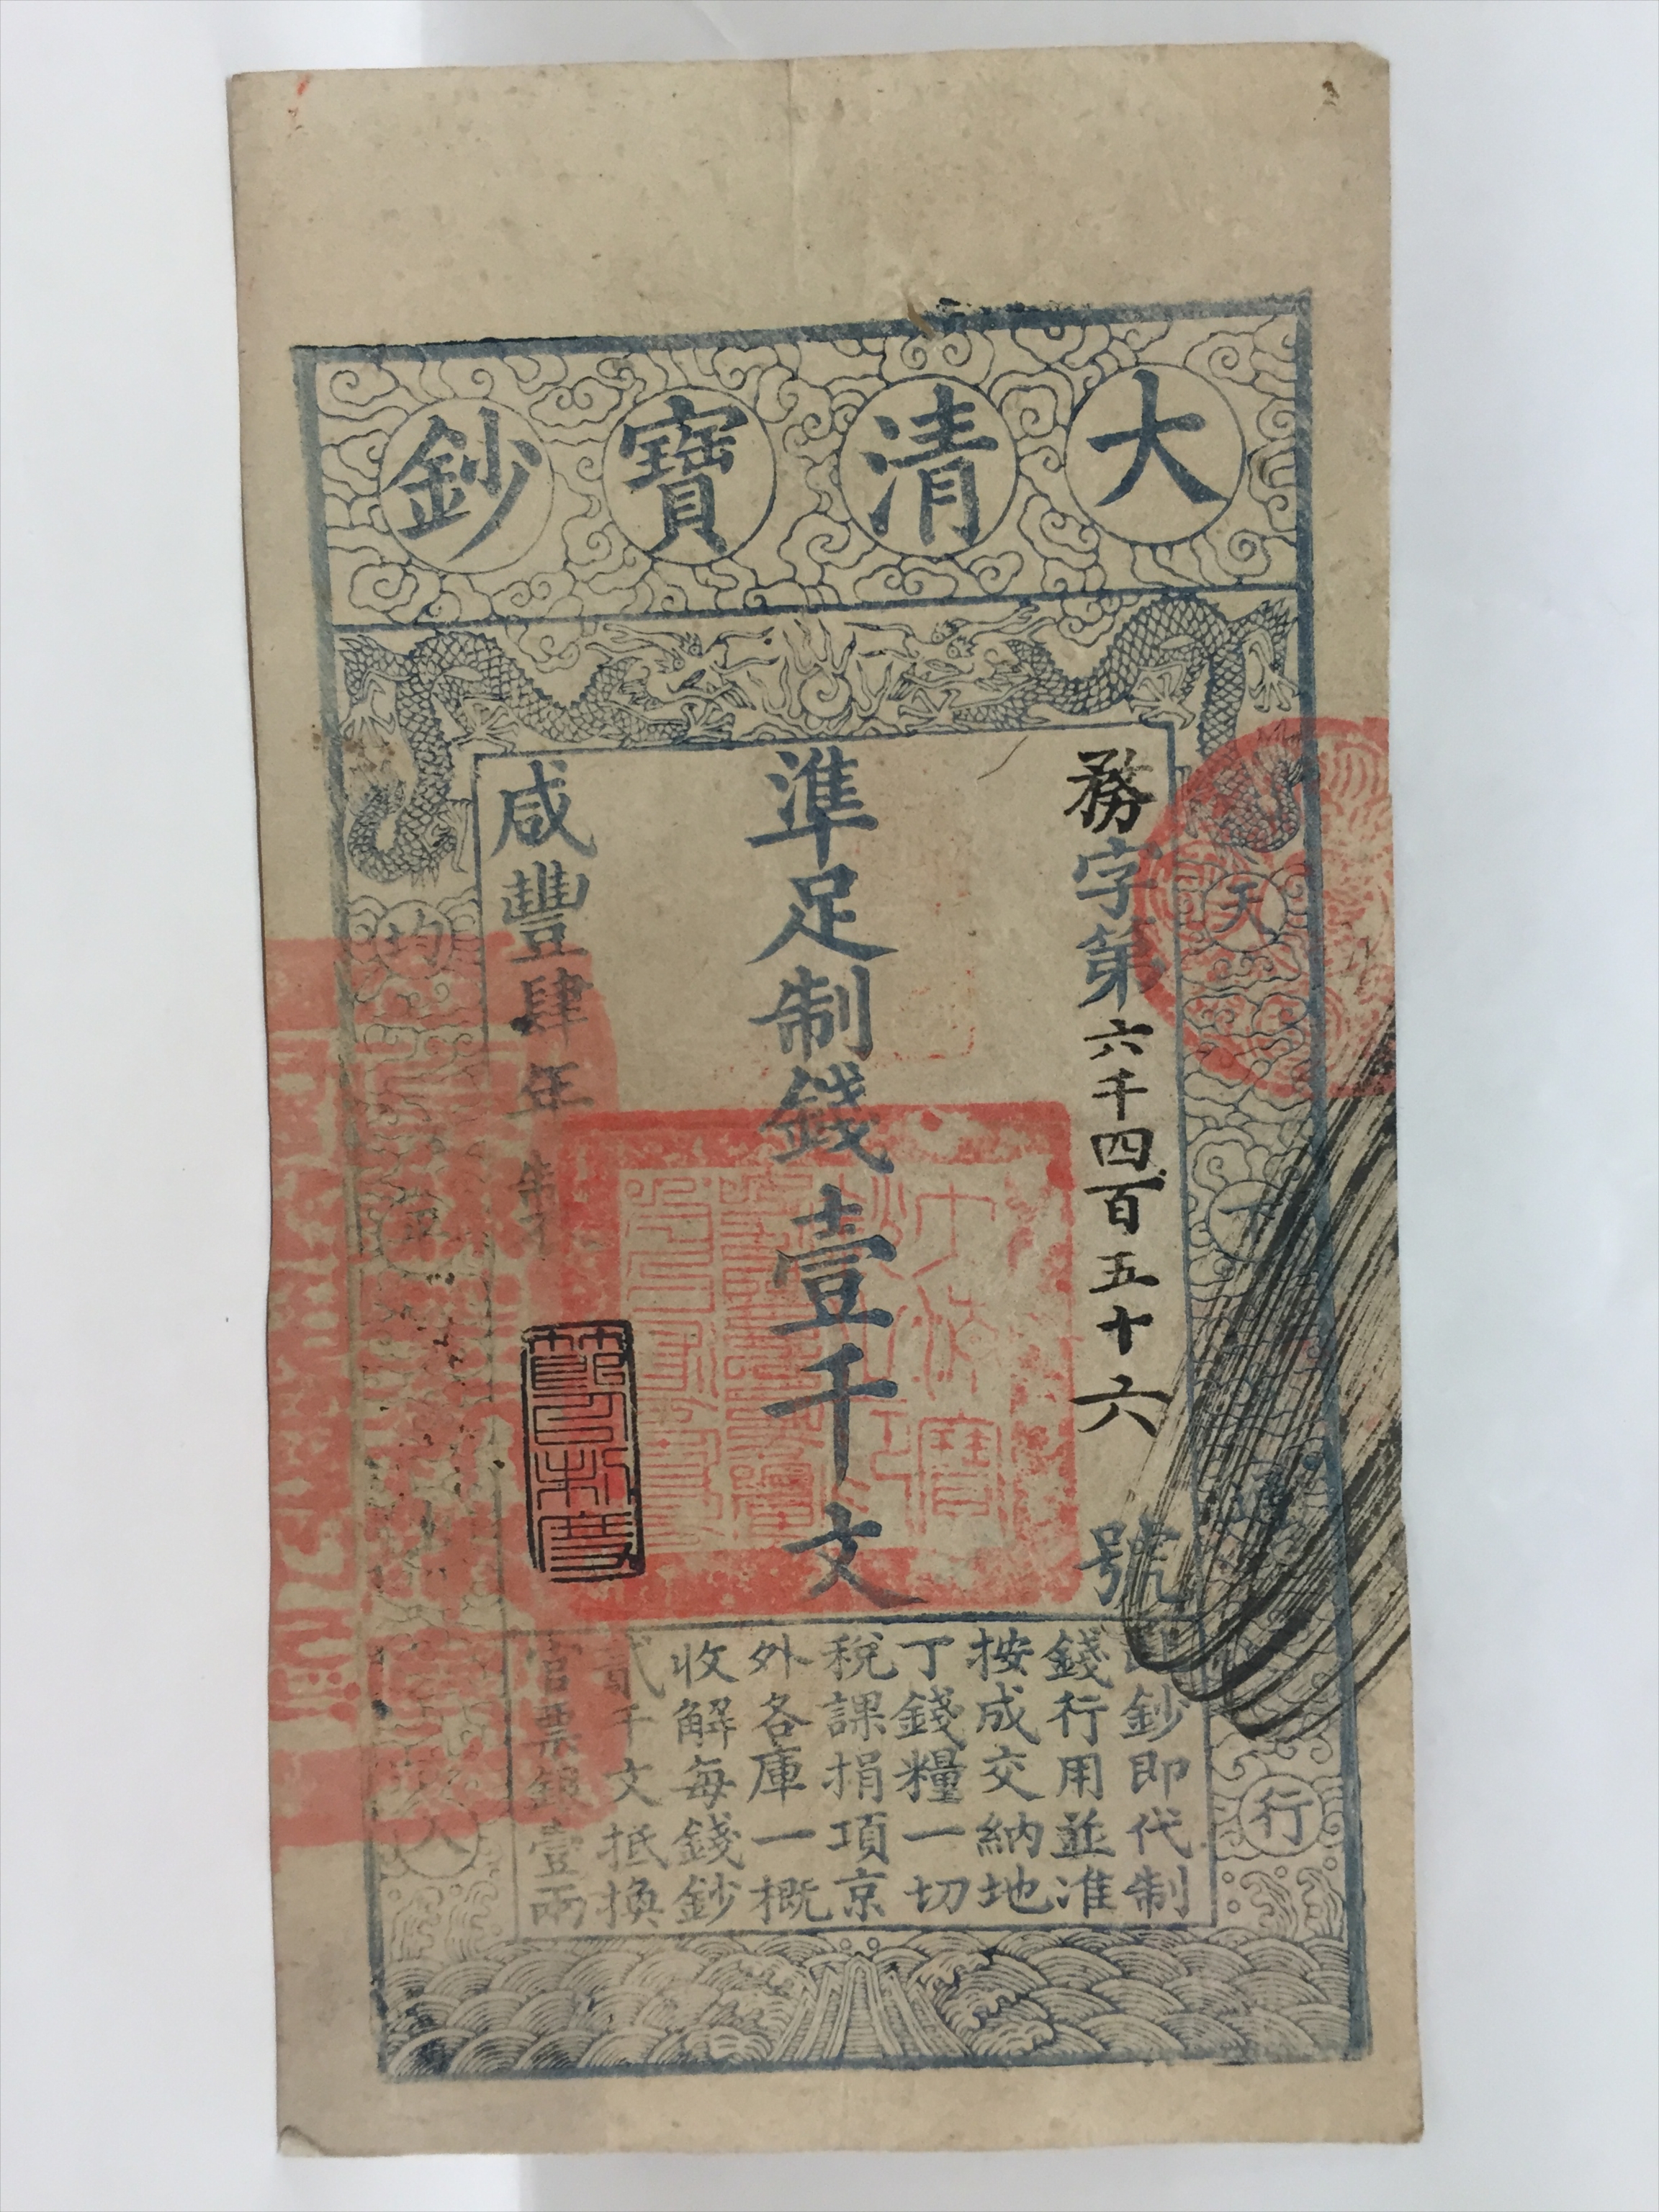 大清寶鈔
務字第六千四百五十六號
準足制錢壹千文
咸豐肆年製
天下通行
均平
人
鈔即代制
錢行用並准
按成交納地
丁錢糧一切
稅課捐項京
外各庫一概
收解每錢鈔
貳千文抵換
官票銀壹兩